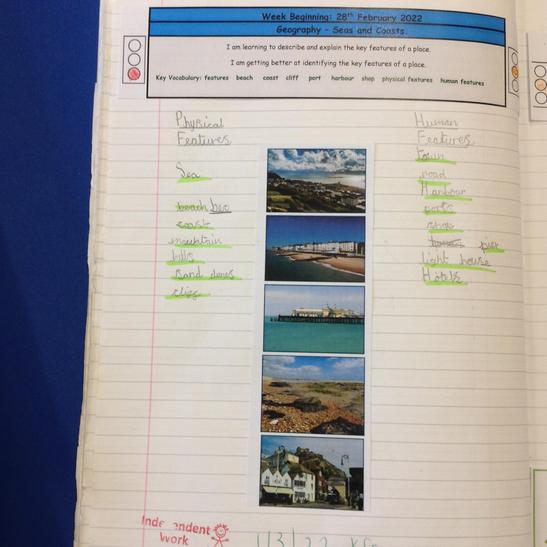 Week Beginning: 28th February 2022
Geography - Seas and Coasts.
I am learning to describe and explain the key features of a place.
I am getting better at identifying the key features of a place.
Key Vocabulary: features beach coast cliff port harbour shop physical features human features
Physical
Features
Sea
beach
coast
mountain
hills
Sand
Human
Features
town
road
Harbour
ports
shop
pier
light house
Hotels
Independent
Work
1/3/22